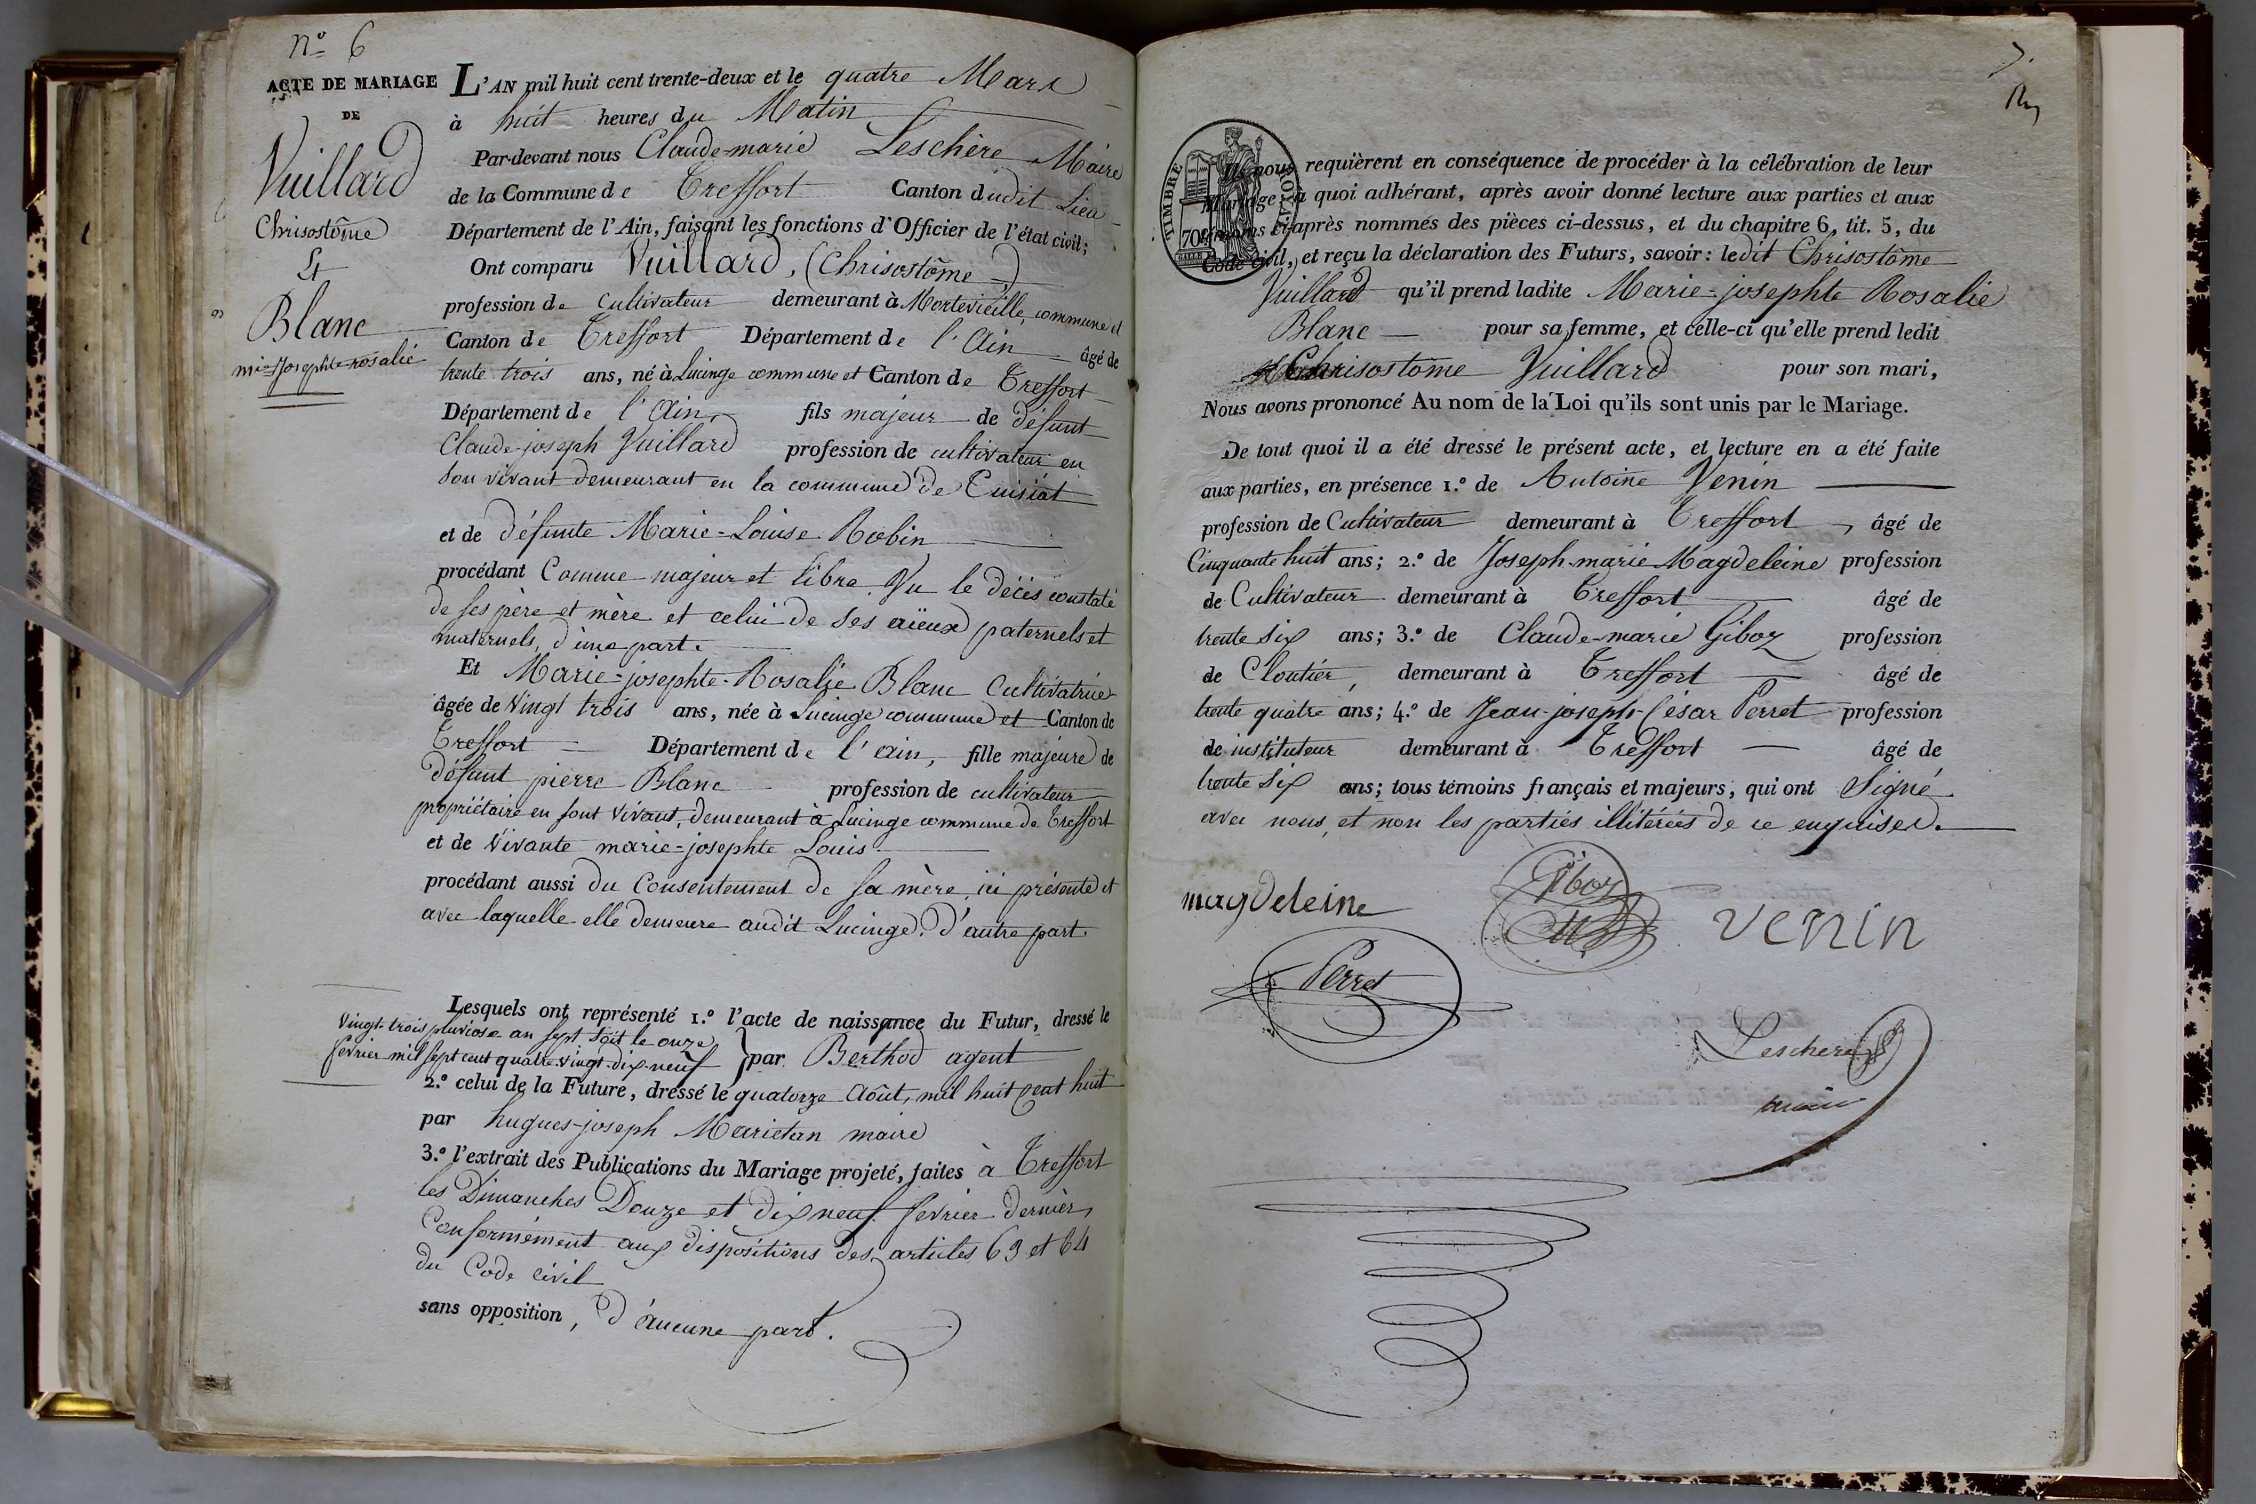 n° 6
ACTE DE MARIAGE
DE
Vuillard
Chrisostôme
Et
Blanc
mie Josephte-rosalie
L'AN mil huit cent trente-deux et le quatre Mars
à huit heures du Matin
Par-devant nous Claude-marie Leschère Maire
de la Commune de Treffort Canton dudit Lieu
Département de l'Ain, faisant les fonctions d'Officier de l'état civil;
Ont comparu Vuillard, (Chrisostôme)
profession de cultivateur demeurant à Montevieille, commune et
Canton de Treffort Département de l'Ain âgé de
trente trois ans, né à Lucinge commune et Canton de Treffort
Département de l'Ain, fils majeur de défunt
Claude-joseph Vuillard profession de cultivateur en
son vivant demeurant en la commune de Cuisiat
et de défunte Marie-Louise Robin
procédant Comme majeur et libre. Vu le décès constaté
de ses père et mère et celui de ses aïeux paternels et
maternels, d'une part.
Et Marie-josephte-Rosalie Blanc Cultivatrice
âgée de Vingt trois ans, née à Lucinge commune et Canton de
Treffort Département de l'ain, fille majeure de
défunt pierre Blanc profession de cultivateur
propriétaire en sont vivant, demeurant à Lucinge commune de Treffort
et de Vivante marie-josephte Louis
procédant aussi du Consentement de sa mère, ici présente et
avec laquelle elle demeure audit Lucinge. D'autre part.
Lesquels ont représenté 1.° l'acte de naissance du Futur, dressé le
Vingt-trois pluviose an sept soit le onze
février mil sept cent quatre-vingt-dix-neuf par Berthod agent
2.° celui de la Future, dressé le quatorze Août, mil huit cent huit
par hugues-joseph Marietan maire
3.° l'extrait des Publications du Mariage projeté, faites à Treffort
les Dimanches Douze et dix neuf février dernier,
Conformément aux dispositions des articles 63 et 64
du Code civil
sans opposition, d'aucune part.
7.
TIMBRE ROYAL
70
Ils nous requièrent en conséquence de procéder à la célébration de leur
Mariage, à quoi adhérant, après avoir donné lecture aux parties et aux
témoins ci-après nommés des pièces ci-dessus, et du chapitre 6, tit. 5, du
Code civil, et reçu la déclaration des Futurs, savoir: ledit Chrisostôme
Vuillard qu'il prend ladite Marie-josephte Rosalie
Blanc pour sa femme, et celle-ci qu'elle prend ledit
Chrisostôme Vuillard pour son mari,
Nous avons prononcé Au nom de la Loi qu'ils sont unis par le Mariage.
De tout quoi il a été dressé le présent acte, et lecture en a été faite
aux parties, en présence 1.° de Antoine Venin
profession de Cultivateur demeurant à Treffort, âgé de
Cinquante huit ans; 2.° de Joseph-marie Magdeleine profession
de Cultivateur demeurant à Treffort âgé de
trente six ans; 3.° de Claude-marie Giboz profession
de Cloutier, demeurant à Treffort âgé de
trente quatre ans; 4.° de Jean-joseph-César Perret profession
de instituteur demeurant à Treffort âgé de
trente six ans; tous témoins français et majeurs, qui ont Signé
avec nous, et non les parties illitérées de ce enquises.
magdeleine
Giboz
venin
Perret
Leschere
maire